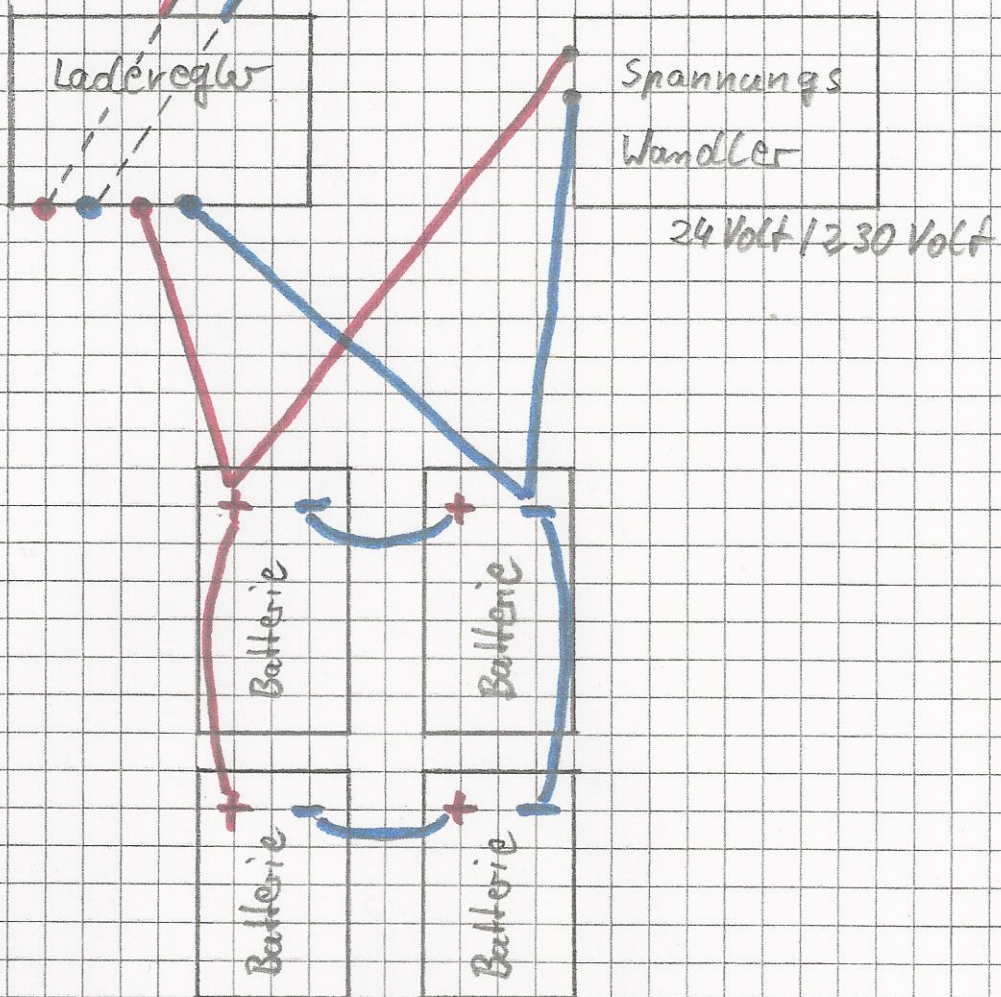 Laderegler
Spannungs
Wandler
24 Volt / 230 Volt
+ - + -
Batterie Batterie
+ - + -
Batterie Batterie